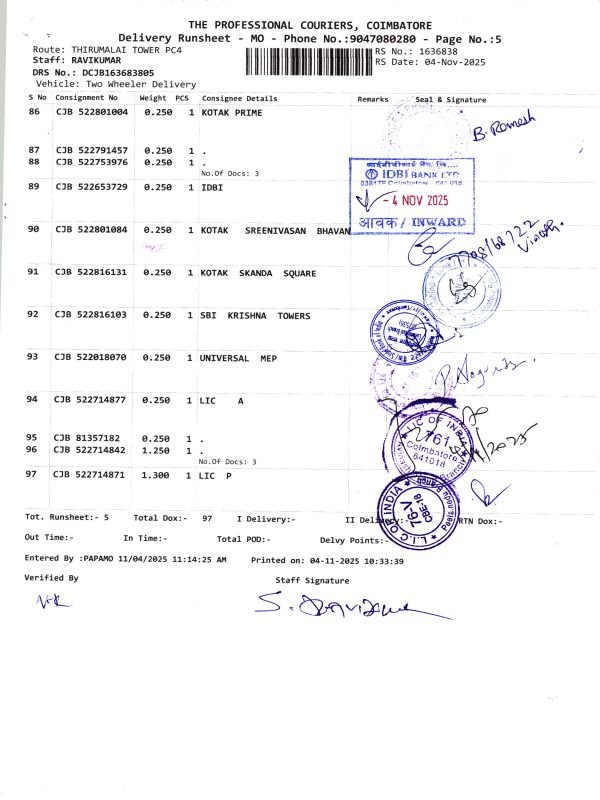 THE PROFESSIONAL COURIERS, COIMBATORE
Delivery Runsheet - MO - Phone No.:9047080280 - Page No.:5
Route: THIRUMALAI TOWER PC4
RS No.: 1636838
Staff: RAVIKUMAR
RS Date: 04-Nov-2025
DRS No.: DCJB163683805
Vehicle: Two Wheeler Delivery
S No Consignment No Weight PCS Consignee Details Remarks Seal & Signature
86 CJB 522801004 0.250 1 KOTAK PRIME
B. Romesh
87 CJB 522791457 0.250 1 .
88 CJB 522753976 0.250 1 .
No.Of Docs: 3
89 CJB 522653729 0.250 1 IDBI
IDBI BANK LTD
- 4 NOV 2025
आवक / INWARD
90 CJB 522801084 0.250 1 KOTAK SREENIVASAN BHAVAN
91 CJB 522816131 0.250 1 KOTAK SKANDA SQUARE
92 CJB 522816103 0.250 1 SBI KRISHNA TOWERS
93 CJB 522018070 0.250 1 UNIVERSAL MEP
94 CJB 522714877 0.250 1 LIC A
LIC OF INDIA
761
Coimbatore
641018
Branch
95 CJB 81357182 0.250 1 .
96 CJB 522714842 1.250 1 .
No.Of Docs: 3
97 CJB 522714871 1.300 1 LIC P
L.I.C OF INDIA
76-V
CBE-18
Tot. Runsheet:- 5 Total Dox:- 97 I Delivery:- II Delivery:- RTN Dox:-
Out Time:- In Time:- Total POD:- Delvy Points:-
Entered By :PAPAMO 11/04/2025 11:14:25 AM Printed on: 04-11-2025 10:33:39
Verified By Staff Signature